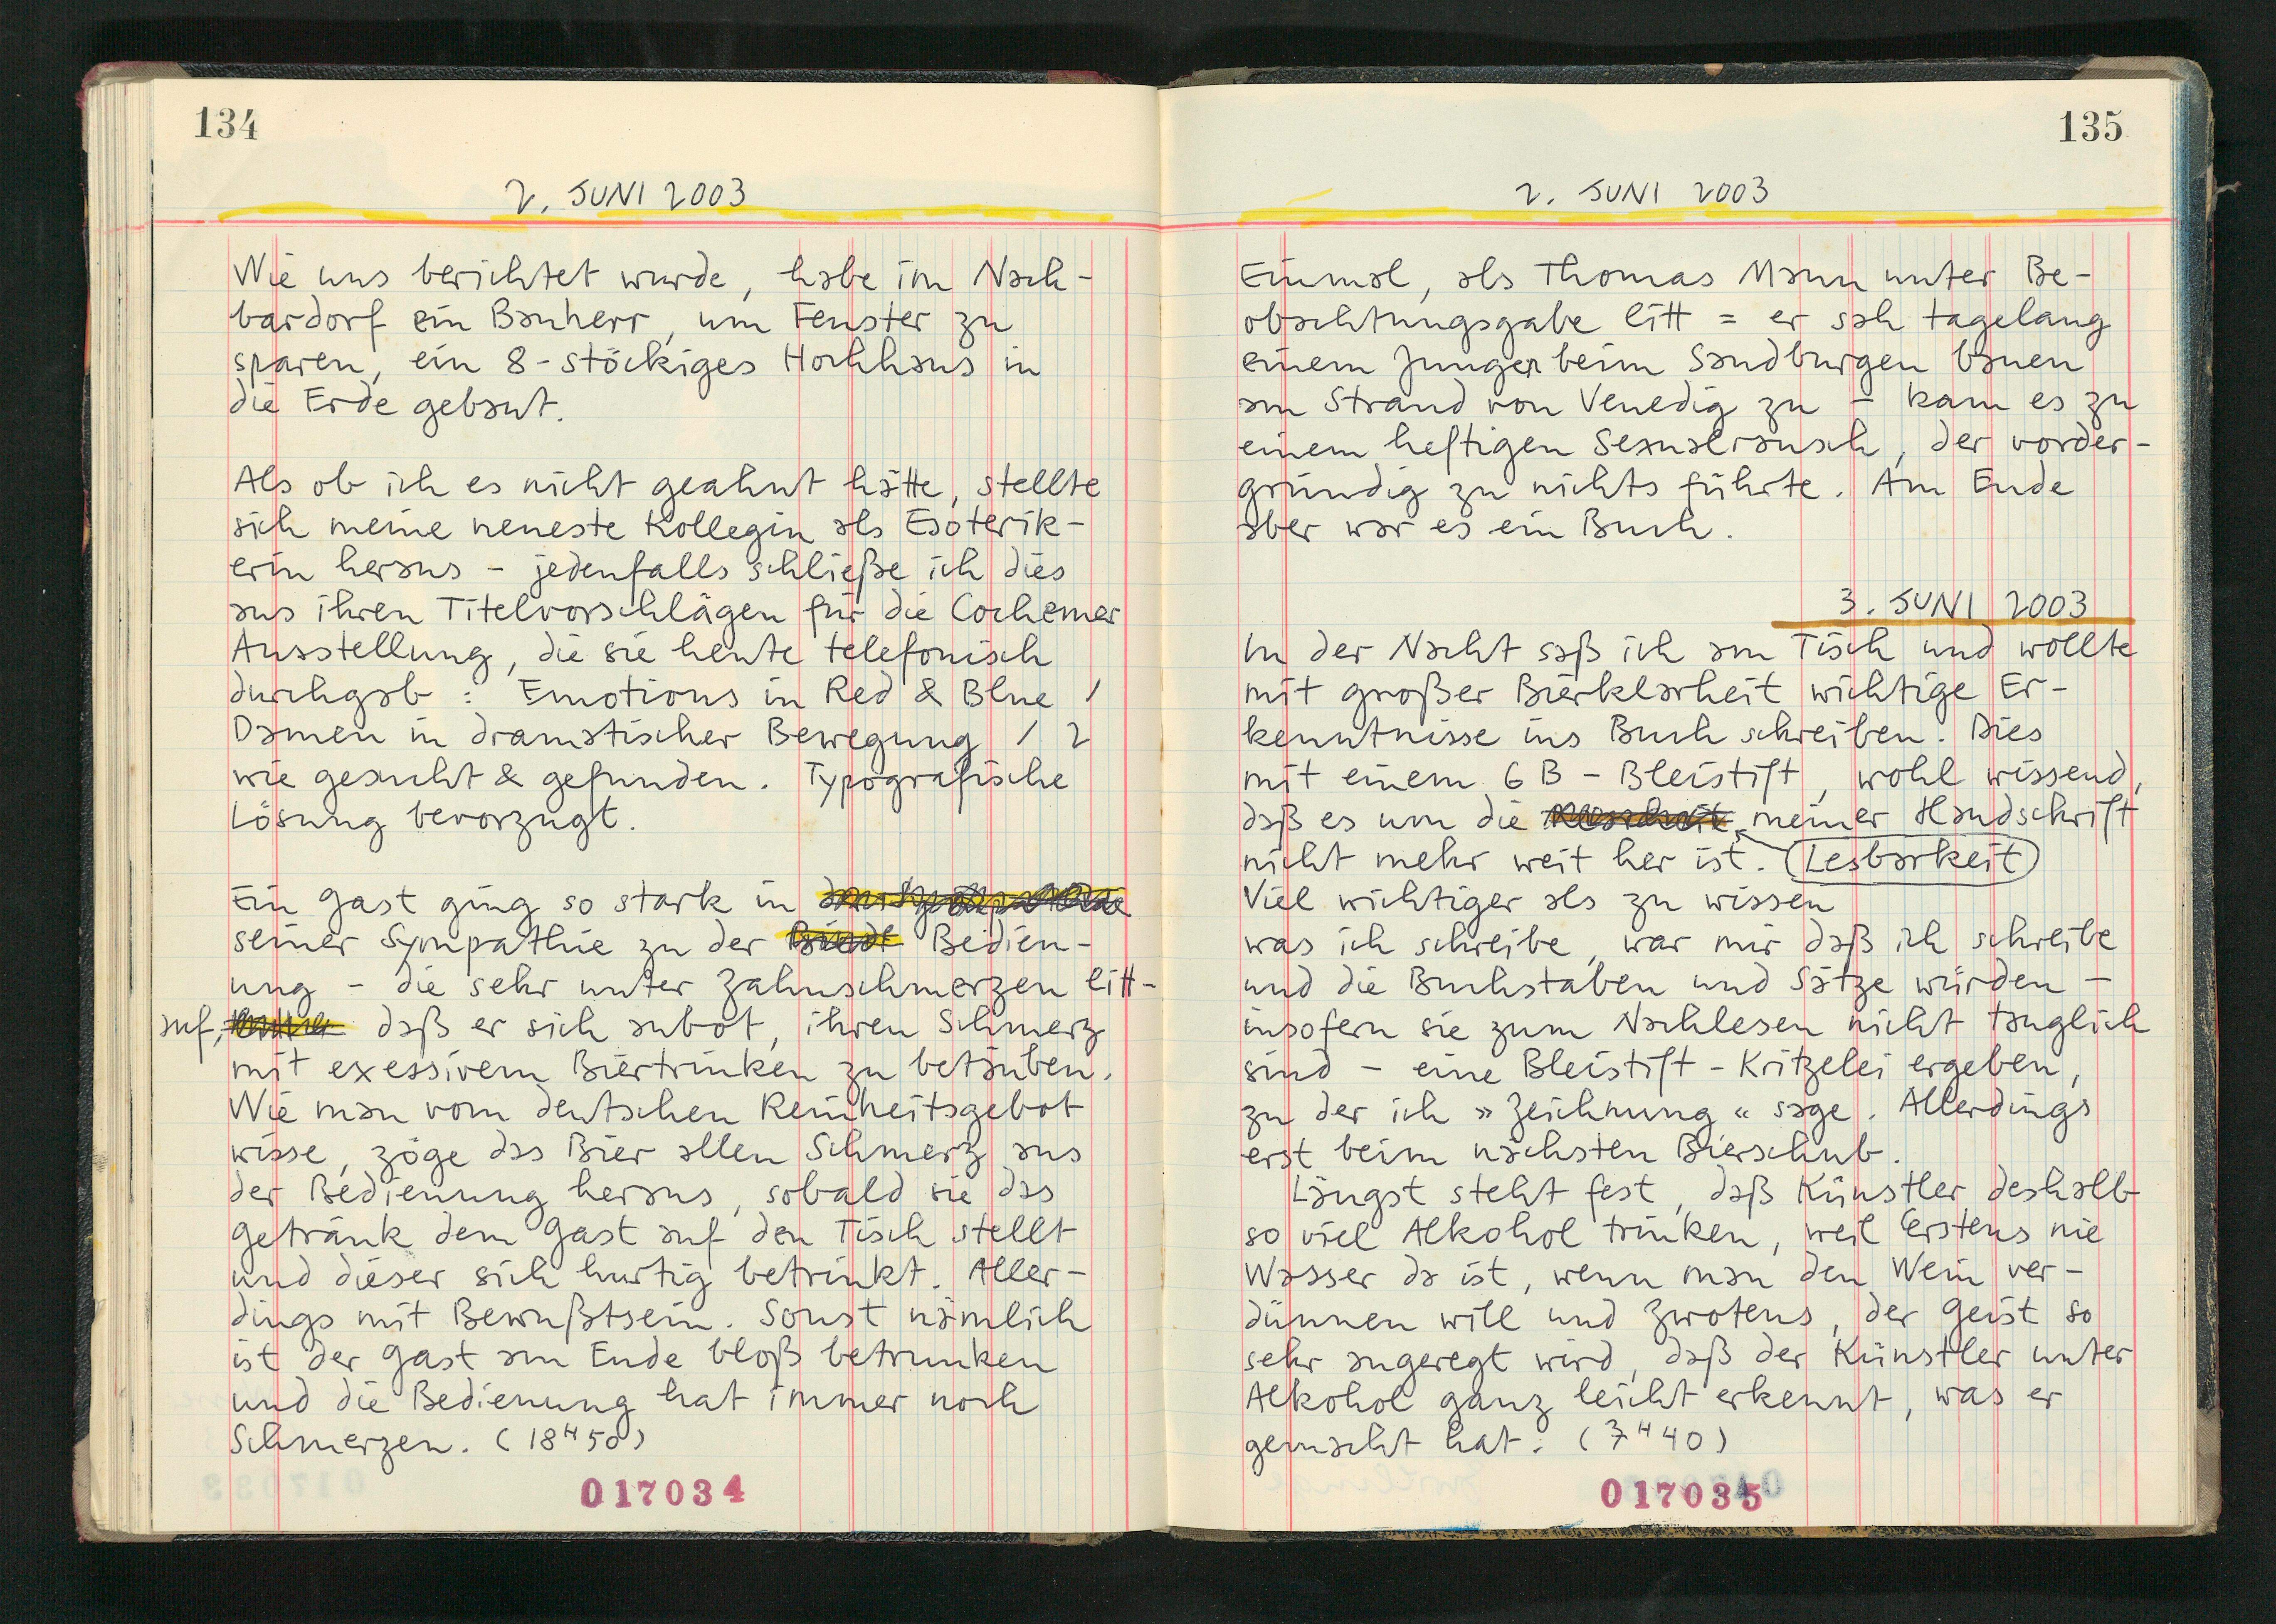 134
2. JUNI 2003
Wie uns berichtet wurde, habe im Nach-
bardorf ein Bauherr, um Fenster zu
sparen, ein 8-stöckiges Hochhaus in
die Erde gebaut.
Als ob ich es nicht geahnt hätte, stellte
sich meine neueste Kollegin als Esoterik-
erin heraus - jedenfalls schließe ich dies
aus ihren Titelvorschlägen für die Cochemer
Ausstellung, die sie heute telefonisch
durchgab: Emotions in Red & Blue /
Damen in dramatischer Bewegung / 2
wie gesucht & gefunden. Typografische
Lösung bevorzugt.
Ein Gast ging so stark in
seiner Sympathie zu der Bedien-
ung - die sehr unter Zahnschmerzen litt -
auf, daß er sich anbot, ihren Schmerz
mit exessivem Biertrinken zu betäuben.
Wie man vom deutschen Reinheitsgebot
wisse, zöge das Bier allen Schmerz aus
der Bedienung heraus, sobald sie das
Getränk dem Gast auf den Tisch stellt
und dieser sich hurtig betrinkt. Aller-
dings mit Bewußtsein. Sonst nämlich
ist der Gast am Ende bloß betrunken
und die Bedienung hat immer noch
Schmerzen. (18ᴴ50)
017034
135
2. JUNI 2003
Einmal, als Thomas Mann unter Be-
obachtungsgabe litt = er sah tagelang
einem Jungen beim Sandburgen bauen
am Strand von Venedig zu - kam es zu
einem heftigen Sexualrausch, der vorder-
gründig zu nichts führte. Am Ende
aber war es ein Buch.
3. JUNI 2003
In der Nacht saß ich am Tisch und wollte
mit großer Bierklarheit wichtige Er-
kenntnisse ins Buch schreiben. Dies
mit einem 6B-Bleistift, wohl wissend,
daß es um die meiner Handschrift
nicht mehr weit her ist. Lesbarkeit
Viel wichtiger als zu wissen
was ich schreibe, war mir daß ich schreibe
und die Buchstaben und Sätze würden -
insofern sie zum Nachlesen nicht tauglich
sind - eine Bleistift-Kritzelei ergeben,
zu der ich »Zeichnung« sage. Allerdings
erst beim nächsten Bierschub.
Längst steht fest, daß Künstler deshalb
so viel Alkohol trinken, weil Erstens nie
Wasser da ist, wenn man den Wein ver-
dünnen will und Zwotens, der Geist so
sehr angeregt wird, daß der Künstler unter
Alkohol ganz leicht erkennt, was er
gemacht hat. (7ᴴ40)
017035